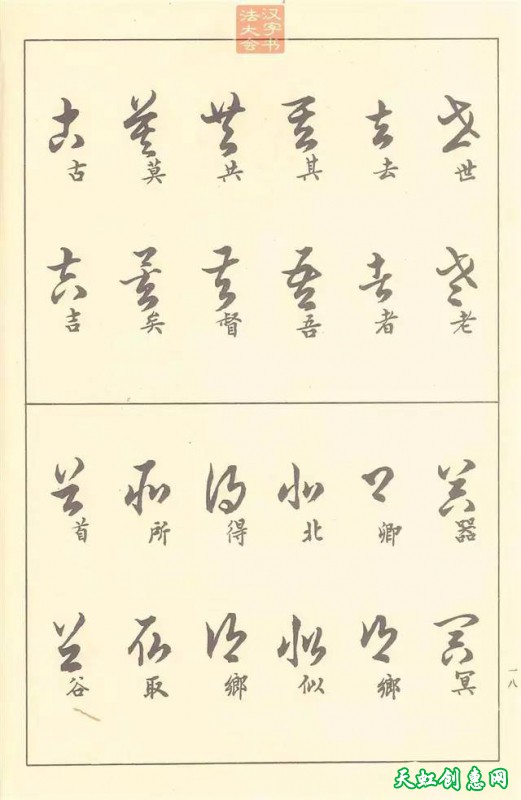 汉字书
法大会
世
老
去
者
其
吾
共
督
莫
矣
古
吉
器
冥
卿
鄉
北
似
得
鄉
所
取
首
谷
一八
天虹创惠网